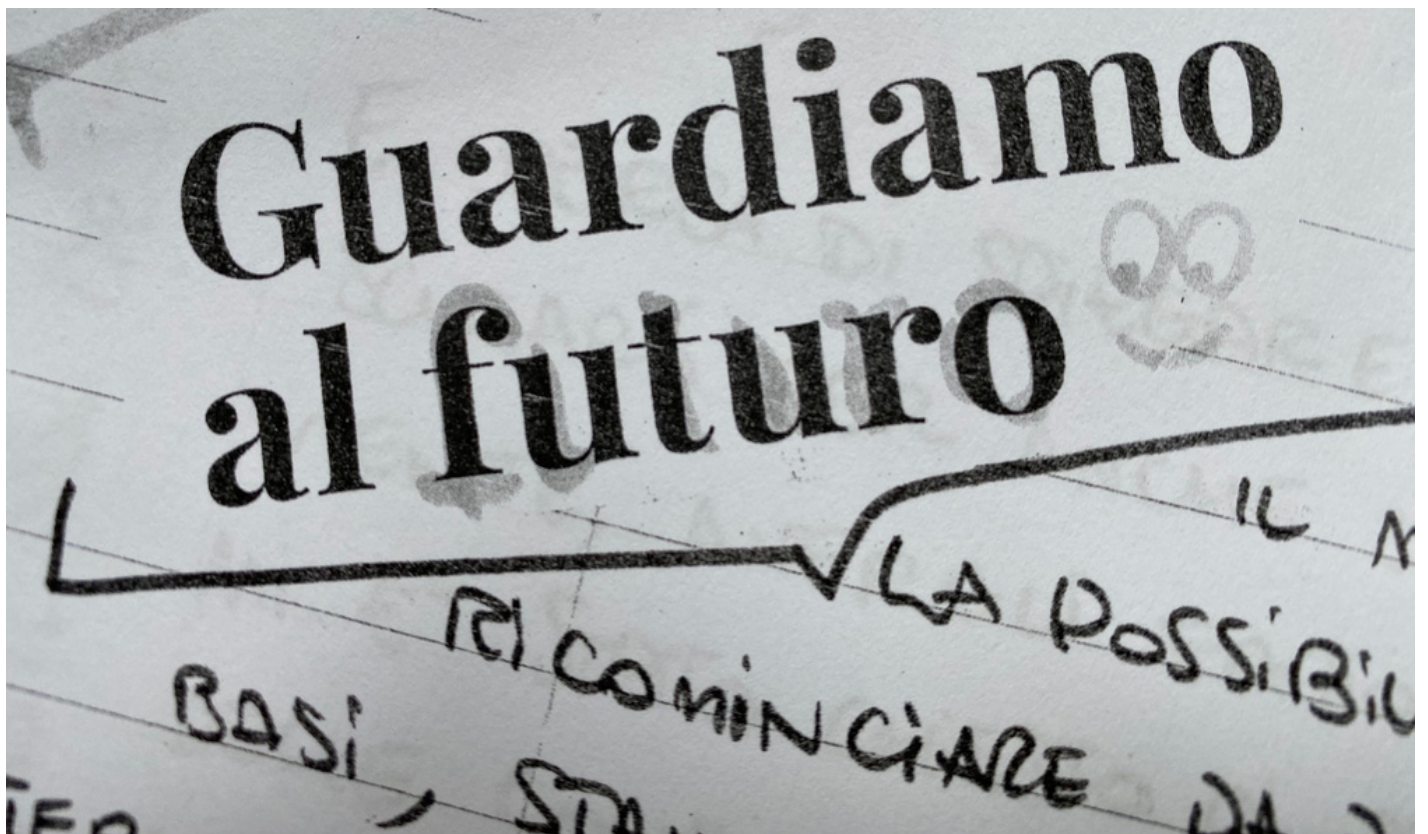 Guardiamo
al futuro
IL
LA POSSIBIL
RICOMINCIARE DA
BASI,